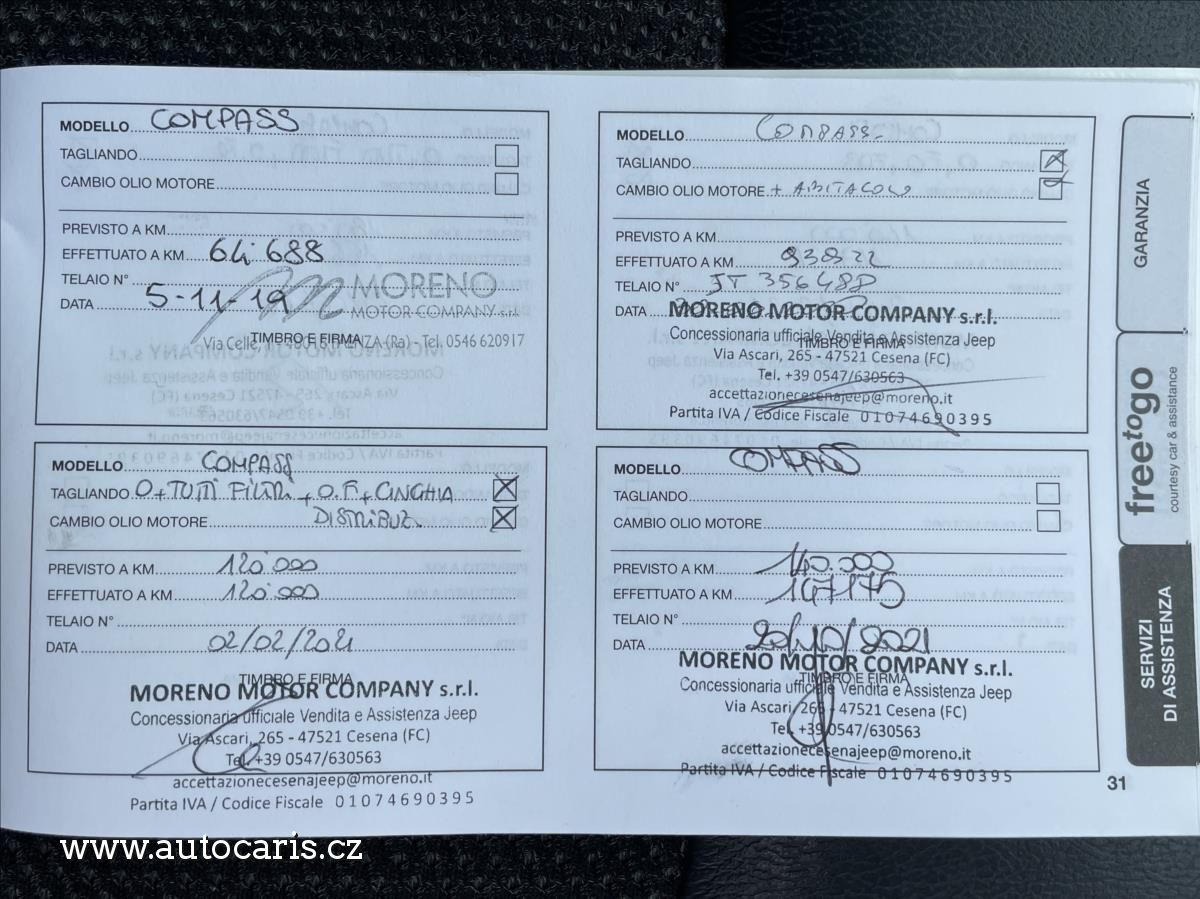 MODELLO COMPASS
TAGLIANDO
CAMBIO OLIO MOTORE
PREVISTO A KM
EFFETTUATO A KM 64.688
TELAIO N°
DATA 5-11-19
MORENO
MOTOR COMPANY s.r.l.
TIMBRO E FIRMA
Via Celle, (Ra) - Tel. 0546 620917
MODELLO COMPASS
TAGLIANDO
CAMBIO OLIO MOTORE + ABITACOLO
PREVISTO A KM
EFFETTUATO A KM 93922
TELAIO N° JT 356488
DATA
MORENO MOTOR COMPANY s.r.l.
TIMBRO E FIRMA
Concessionaria ufficiale Vendita e Assistenza Jeep
Via Ascari, 265 - 47521 Cesena (FC)
Tel. +39 0547/630563
accettazionecesenajeep@moreno.it
Partita IVA / Codice Fiscale 01074690395
MODELLO COMPASS
TAGLIANDO O+TUTTI FILTRI + O.F + CINGHIA
CAMBIO OLIO MOTORE DISTRIBUZ.
PREVISTO A KM 120.000
EFFETTUATO A KM 120.000
TELAIO N°
DATA 02/02/2021
TIMBRO E FIRMA
MORENO MOTOR COMPANY s.r.l.
Concessionaria ufficiale Vendita e Assistenza Jeep
Via Ascari, 265 - 47521 Cesena (FC)
Tel. +39 0547/630563
accettazionecesenajeep@moreno.it
Partita IVA / Codice Fiscale 01074690395
MODELLO COMPASS
TAGLIANDO
CAMBIO OLIO MOTORE
PREVISTO A KM 140.000
EFFETTUATO A KM 147175
TELAIO N°
DATA 20/10/2021
MORENO MOTOR COMPANY s.r.l.
TIMBRO E FIRMA
Concessionaria ufficiale Vendita e Assistenza Jeep
Via Ascari, 265 - 47521 Cesena (FC)
Tel. +39 0547/630563
accettazionecesenajeep@moreno.it
Partita IVA / Codice Fiscale 01074690395
GARANZIA
freetogo
courtesy car & assistance
SERVIZI
DI ASSISTENZA
31
www.autocaris.cz